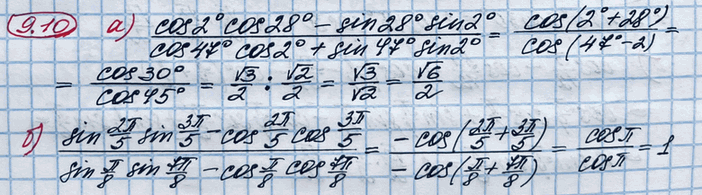 9.10 а) (cos2° cos28° − sin28° sin2°)/(cos47° cos2° + sin47° sin2°) = cos(2°+28°)/cos(47°−2) =
= cos30°/cos45° = √3/2 : √2/2 = √3/√2 = √6/2
б) (sin 2π/5 sin 3π/5 − cos 2π/5 cos 3π/5)/(sin π/8 sin 7π/8 − cos π/8 cos 7π/8) = −cos(2π/5 + 3π/5)/−cos(π/8 + 7π/8) = cosπ/cosπ = 1